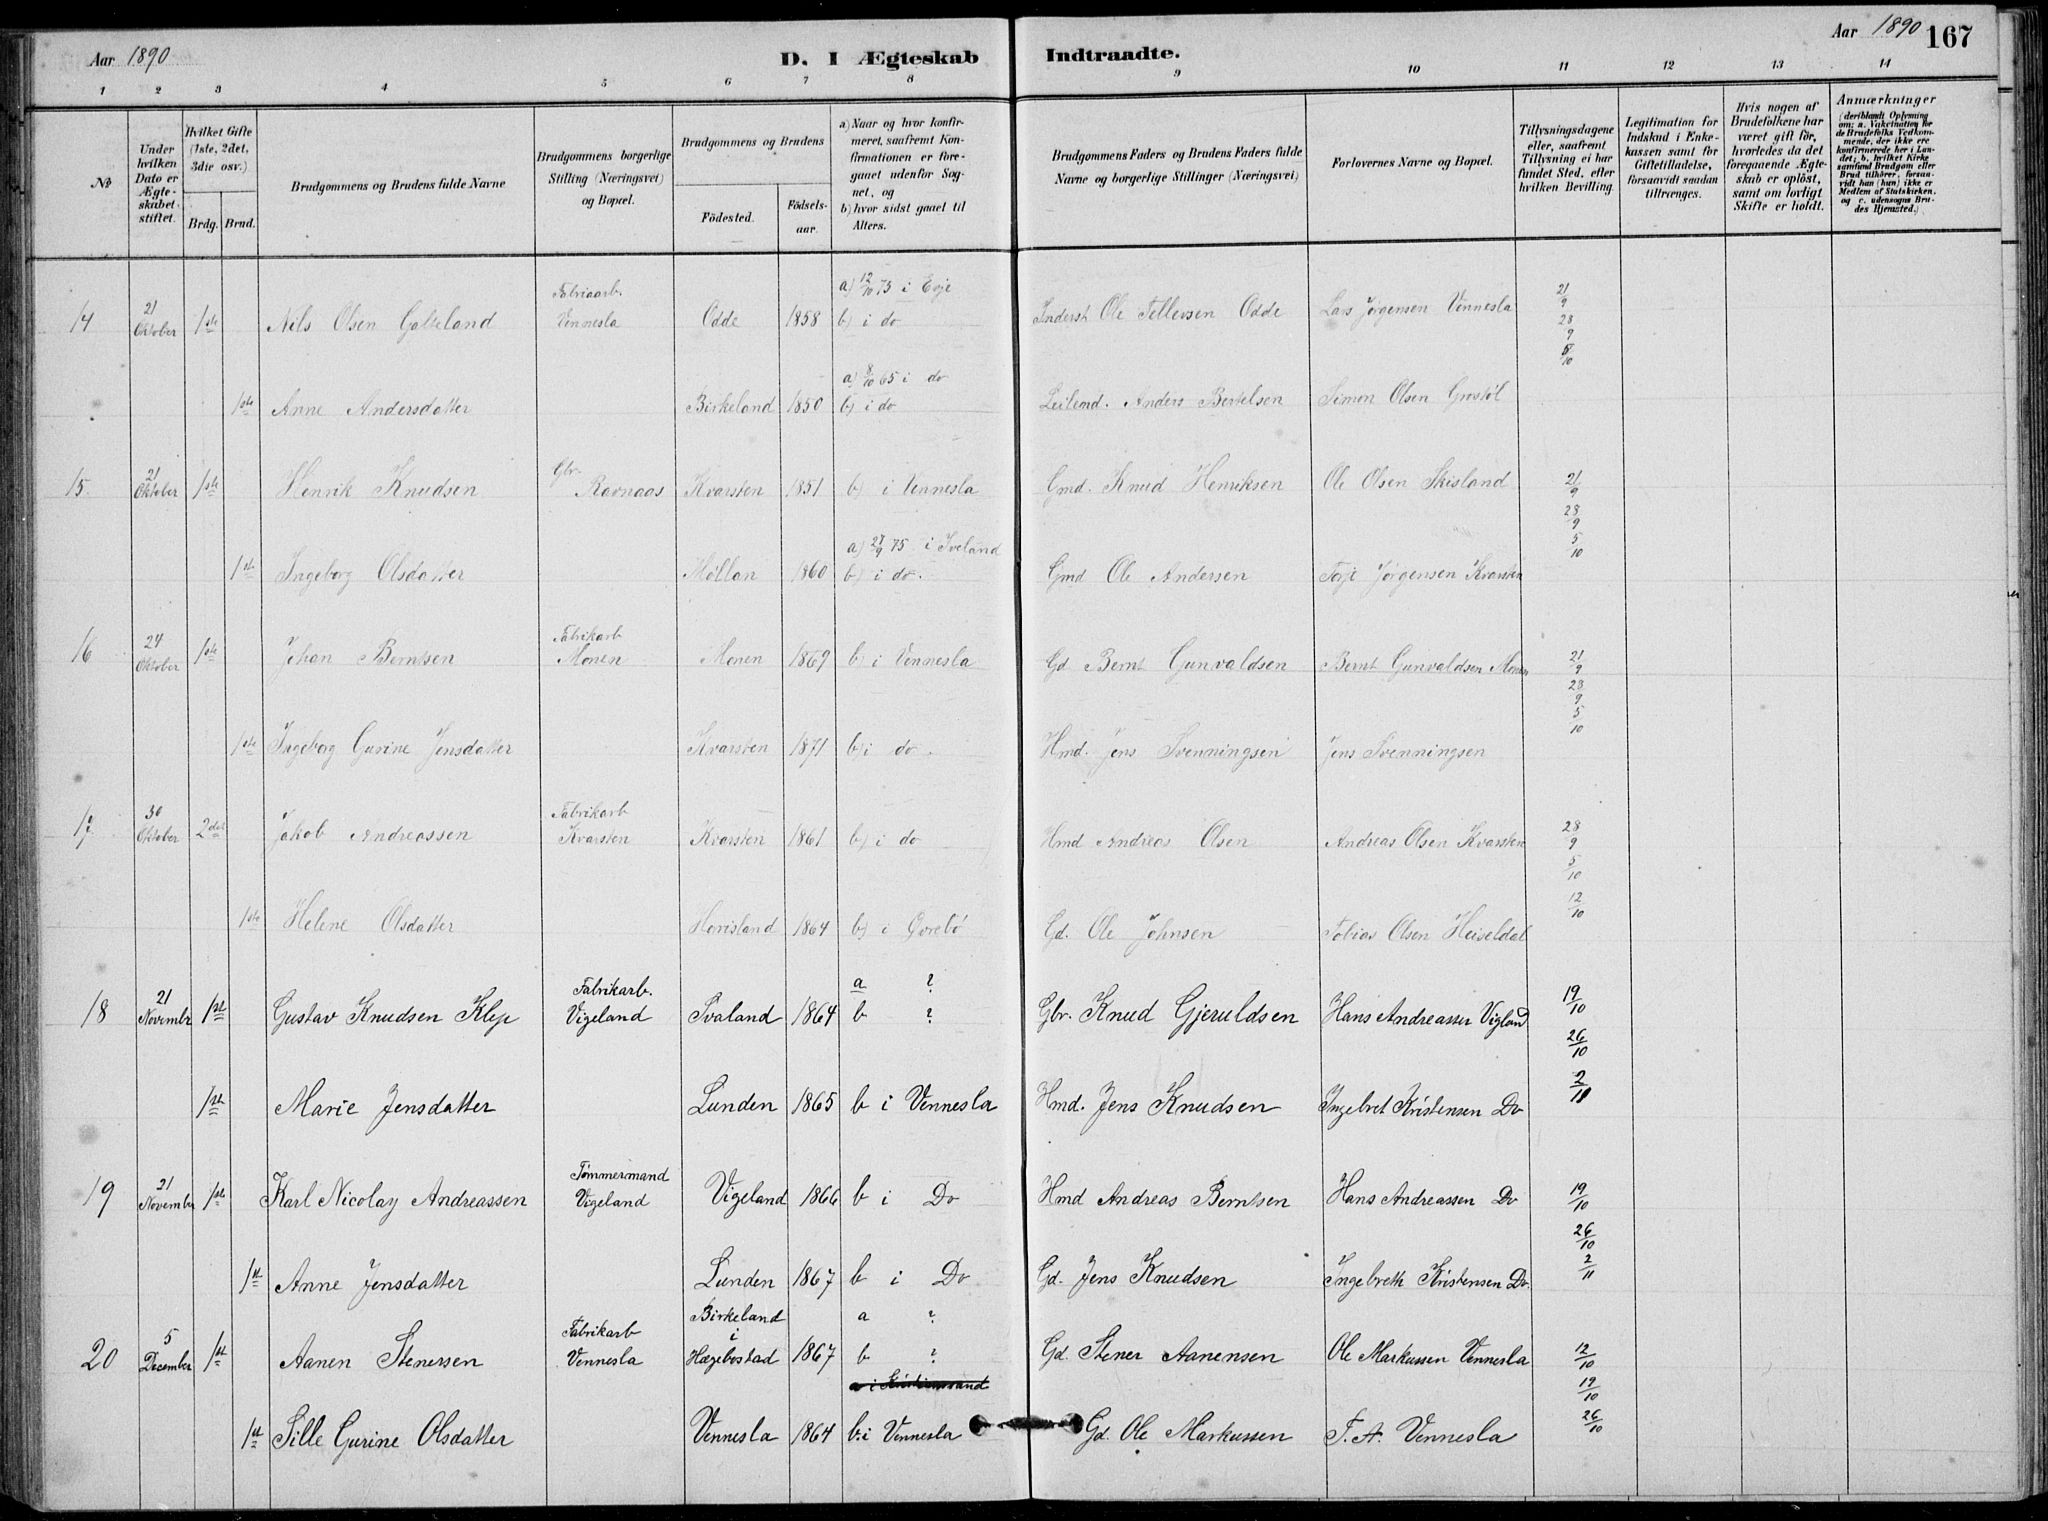 Aar 1890
D. I Ægteskab Indtraadte.
Aar 1890 167
1 2 3 4 5 6 7 8 9 10 11 12 13 14
No
Under hvilken Dato er Ægteskabet stiftet.
Hvilket Gifte (1ste, 2det, 3die osv.)
Brdg. Brud.
Brudgommens og Brudens fulde Navne
Brudgommens borgerlige Stilling (Næringsvei) og Bopæl.
Brudgommens og Brudens
Födested. Födselsaar.
a) Naar og hvor konfirmeret, saafremt Konfirmationen er foregaaet udenfor Sognet, og
b) hvor sidst gaaet til Alters.
Brudgommens Faders og Brudens Faders fulde Navne og borgerlige Stillinger (Næringsvei)
Forlovernes Navne og Bopæl.
Tillysningsdagene eller, saafremt Tillysning ei har fundet Sted, efter hvilken Bevilling.
Legitimation for Indskud i Enkekassen samt for Giftetilladelse, forsaavidt saadan tiltrænges.
Hvis nogen af Brudefolkene har været gift för, hvorledes da det foregaaende Ægteskab er oplöst, samt om lovligt Skifte er holdt.
Anmærkninger (deriblandt Oplysning om: a. Vakcination for de Brudefolks Vedkommende, der ikke ere konfirmerede her i Landet; b. hvilket Kirkesamfund Brudgom eller Brud tilhörer, forsaavidt han (hun) ikke er Medlem af Statskirken, og c. udensogns Brudes Hjemsted.)
14 21 Oktober 1ste Nils Olsen Galteland Fabriaarb. Vennesla Odde 1858 a) 12/10 73 i Evje b) i do Inderst Ole Tellevsen Odde Lars Jørgensen Vennesla 21/9 28/9 5/10
1ste Anne Andersdatter Birkeland 1850 a) 8/10 65 i do b) i do Leilend. Anders Bertelsen Simon Olsen Grostøl
15. 21 Oktober 1ste Henrik Knudsen Gbr. Ravnaas Kvarsten 1851 b) i Vennesla Gmd. Knud Henriksen Ole Olsen Skisland 21/9 28/9 5/10
1ste Ingeborg Olsdatter Møllan 1860 a) 27/9 75 i Iveland b) i do. Gmd Ole Andersen Torje Jørgensen Kvarsten
16 24 Oktober 1ste Johan Berntsen Fabrikarb Monen Monen 1869 b) i Vennesla Gd Bernt Gunvaldsen Bernt Gunvaldsen Monen 21/9 28/9 5/10
1ste Ingeborg Gurine Jensdatter Kvarsten 1871 b) i do. Hmd. Jens Svenningsen Jens Svenningsen
17. 30 Oktober 2det Jakob Andreassen Fabrikarb Kvarsten Kvarsten 1861 b) i do Hmd Andreas Olsen Andreas Olsen Kvarsten 28/9 5/10 12/10
1ste Helene Olsdatter Hovisland 1864 b) i Øvrebø Gd. Ole Johnsen Tobias Olsen Heiseldal
18 21 Novembr 1ste Gustav Knudsen Klep Fabrikarb. Vigeland Svaland 1864 a ? b ? Gbr. Knud Gjeruldsen Hans Andreassen Vigland 19/10 26/10 2/11
1ste Marie Jensdatter Lunden 1865 b i Vennesla Hmd. Jens Knudsen Ingebret Kristensen Do
19 21 November 1ste Karl Nicolay Andreassen Tømmermand Vigeland Vigeland 1866 b i Do Hmd Andreas Berntsen Hans Andreassen Do 19/10 26/10 2/11
1st Anne Jensdatter Lunden 1867 b i Do Gd. Jens Knudsen Ingebreth Kristensen Do.
20 5 December 1st Aanen Stenersen Fabrikarb Vennesla Birkeland i Hægebostad 1867 a ? b ? Gd. Stener Aanensen Ole Markussen Vennesla 12/10 19/10 26/10
a i Kristianssand
1st Sille Gurine Olsdatter Vennesla 1864 b. i Vennesla Gd. Ole Markussen T. A. Vennesla